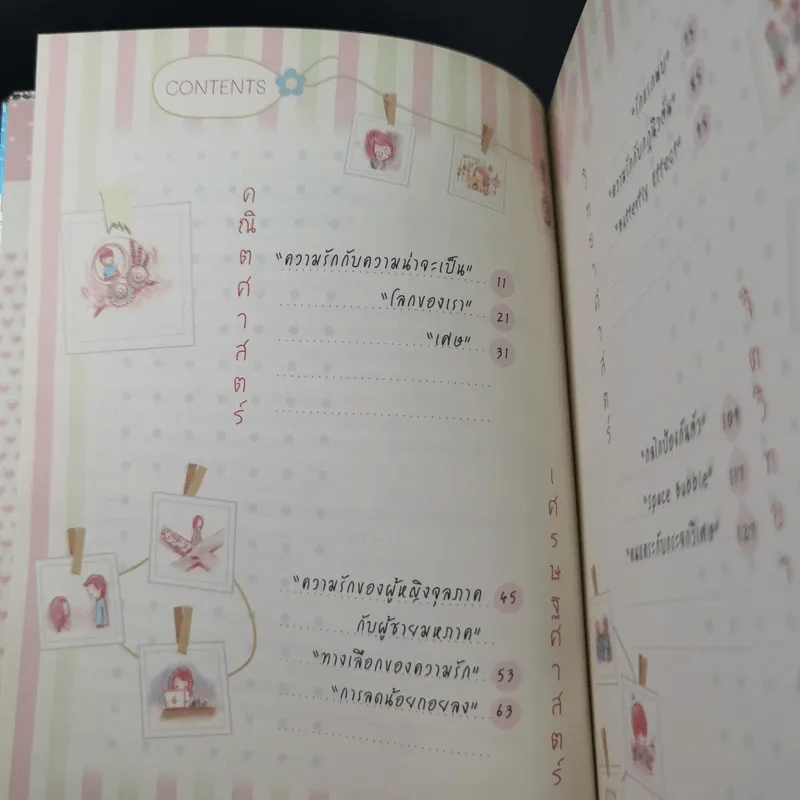 CONTENTS
คณิตศาสตร์
"ความรักกับความน่าจะเป็น" 11
"โลกของเรา" 21
"เศษ" 31
เศรษฐศาสตร์
"ความรักของผู้หญิงจุลภาค 45
กับผู้ชายมหภาค"
"ทางเลือกของความรัก" 53
"การลดน้อยถอยลง" 63
วิทยาศาสตร์
"รักแรกพบ" 75
"ความรักกับภูมิคุ้มกัน"
"Butterfly Effect" 95
จิตวิทยา
"กลไกป้องกันตัว" 109
"space bubble" 117
"คนเคระกับกระจกวิเศษ" 127